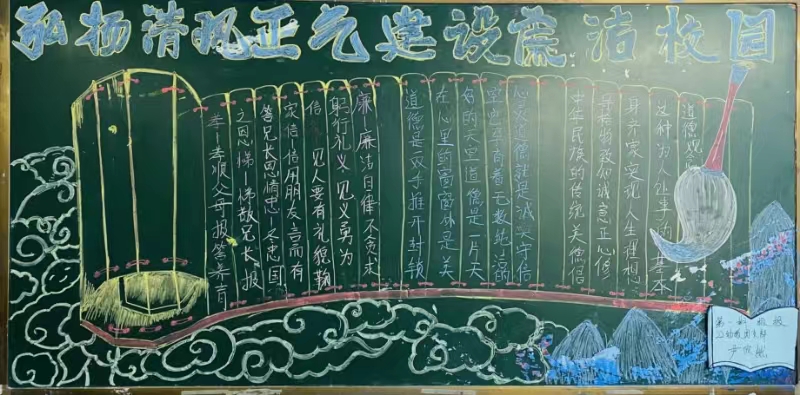 弘扬清风正气建设廉洁校园
孝·孝顺父母报答养育
之恩悌·悌敬兄长报
答兄长恩情忠·之忠国
家信·信用朋友言而有
信 见人要有礼德鞠
躬行礼义 见义勇为
廉·廉洁自律不贪求
道德是双手推开封锁
在心里的窗窗外是美
名的天空道德是一片天
空
心灵道德就是诚实守信
中华民族的传统美德倡
格物致知诚意正心修
身齐家实现人生理想
这种为人处事的基本
道德观念
第一期板报